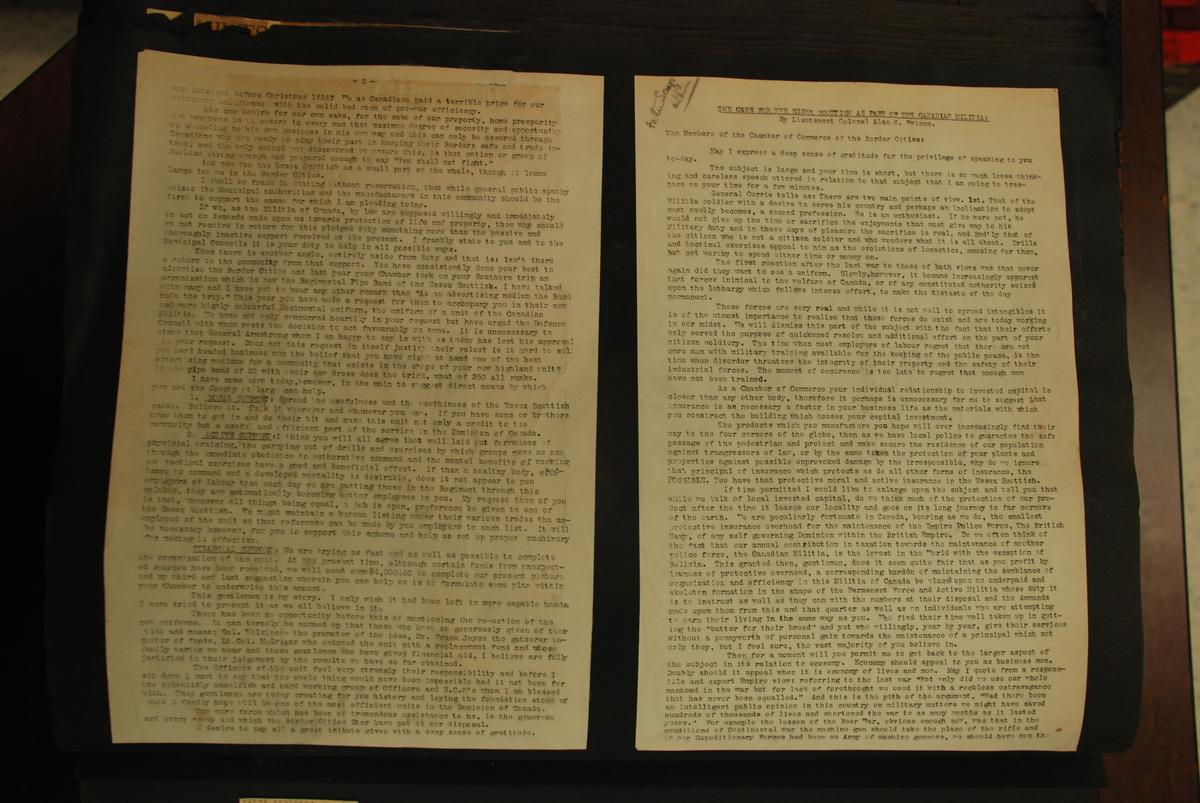 For the Scrap
album
THE CASE FOR THE ESSEX SCOTTISH AS PART OF THE CANADIAN MILITIA:
By Lieutenant Colonel Alan C. Prince.
The Members of the Chamber of Commerce of the Border Cities:
May I express a deep sense of gratitude for the privilege of speaking to you
to-day.
The subject is large and your time is short, but there is so much loose think-
ing and careless speech uttered in relation to that subject that I am going to tres-
pass on your time for a few minutes.
General Currie tells us: There are two main points of view. 1st. That of the
Militia soldier with a desire to serve his country and perhaps an inclination to adopt
what really becomes, a second profession. He is an enthusiast. If he were not, he
would not give up the time or sacrifice the enjoyments that must give way to his
Military duty and in these days of pleasure the sacrifice is real, and 2nd'ly that of
the citizen who is not a citizen soldier and who wonders what it is all about. Drills
and tactical exercises appeal to him as the evolutions of lunatics, amusing for them,
but not worthy to spend either time or money on.
The first reaction after the last war to those of both views was that never
again did they want to see a uniform. Slowly,however, it became increasingly apparent
that forces inimical to the welfare of Canada, or of any constituted authority seized
upon the lethargy which follows intense effort, to make the distaste of the day
permanent.
These forces are very real and while it is not well to spread intangibles it
is of the utmost importance to realize that these forces do exist and are today working
in our midst. We will dismiss this part of the subject with the fact that their efforts
only served the purpose of quickened resolve and additional effort on the part of your
citizen soldiery. The time when most employers of labour regret that there are not
more men with military training available for the keeping of the public peace, is the
time when disorder threatens the integrity of their property and the safety of their
industrial forces. The moment of occurence is too late to regret that enough men
have not been trained.
As a Chamber of Commerce your individual relationship to invested capital is
closer than any other body, therefore it perhaps is unnecessary for me to suggest that
insurance is as necessary a factor in your business life as the materials with which
you construct the building which houses your capital investment.
The products which you manufacture you hope will ever increasingly find their
way to the four corners of the globe, then as we have local police to guarantee the safe
passage of the pedestrian and protect and make secure the residence of our population
against trangressors of law, or by the same token the protection of your plants and
properties against possible unprovoked damage by the irresponsible, why do we ignore
that principal of insurance which protects as do all other forms of insurance, the
POSSIBLE. You have that protective moral and active insurance in the Essex Scottish.
If time permitted I would like to enlarge upon the subject and tell you that
while we talk of local invested capital, do we think much of the protection of our pro-
duct after the time it leaves our locality and goes on its long journey to far corners
of the earth. We are peculiarly fortunate in Canada, bearing as we do, the smallest
protective insurance overhead for the maintenance of the Empire Police Force, The British
Navy, of any self governing Dominion within the British Empire. Do we often think of
the fact that our annual contribution in taxation towards the maintenance of another
police force, the Canadian Militia, is the lowest in the World with the exception of
Bolivia. This granted then, gentlemen, does it seem quite fair that as you profit by
lowness of protective overhead, a corresponding burden of maintaining the semblance of
organization and efficiency in this Militia of Canada be placed upon an underpaid and
skeleton formation in the shape of the Permanent Force and Active Militia whose duty it
is to instruct as well as they can with the numbers at their disposal and the demands
made upon them from this and that quarter as well as on individuals who are attempting
to earn their living in the same way as you. The find their time well taken up in gett-
ing the "butter for their bread" and yet who willingly, year by year, give their services
without a pennyworth of personal gain towards the maintenance of a principal which not
only they, but I feel sure, the vast majority of you believe in.
Then for a moment will you permit me to get back to the larger aspect of
the subject in its relation to economy. Economy should appeal to you as business men.
Doubly should it appeal when it is economy of lives and men. May I quote from a respons-
ible and expert Empire view: referring to the last war "Not only did we use our whole
manhood in the war but for lack of forethought we used it with a reckless extravagance
that has never been equalled." And this is the pith of the argument, "Had there been
an intelligent public opinion in this country on military matters we might have saved
hundreds of thousands of lives and shortened the war to as many months as it lasted
years." For example the lesson of the Boer War, obvious enough now, was that in the
conditions of Continental war the machine gun should take the place of the rifle and
if our Expeditionary Forces had been an Army of machine gunners, we should have won the
- 2 -
war outright before Christmas 1914? We as Canadians paid a terrible price for our
voluntary enlistment with the solid bed rock of pre-war efficiency.
The one desire for our own sake, for the sake of our property, home prosperity
and progress is to ensure to every man that maximum degree of security and opportunity
of attending to his own business in his own way and this can only be assured through
Canadians who are ready to play their part in keeping their Borders safe and trade in-
tact, and the only method yet discovered to ensure this, is that nation or group of
Nations strong enough and prepared enough to say "You shall not fight."
And now for the Essex Scottish as a small part of the whole, though it looms
large for us in the Border Cities.
I shall be frank in stating without reservation, that while general public apathy
exists the Municipal authorities and the manufacturers in this community should be the
first to support the cause for which I am pleading today.
If we, as the Militia of Canada, by law are supposed willingly and immediately
to act on demands made upon us towards protection of life and property, then why should
we not receive in return for this pledged duty something more than the passive and
thoroughly inactive support received at the present. I frankly state to you and to the
Municipal Councils it is your duty to help in all possible ways.
Then there is another angle, entirely aside from duty and that is: Isn't there
a return to the community from that support. You have consistently done your best to
advertise the Border Cities and last year your Chamber took on your Southern trip an
organization which is now the Regimental Pipe Band of the Essex Scottish. I have talked
with many and I have yet to hear any other remark than "As an advertising medium the Band
made the trip." This year you have made a request for them to accompany you in their new
and more highly colourful Regimental uniform, the uniform of a unit of the Canadian
Militia. We have not only concurred heartily in your request but have urged the Defence
Council with whom rests the decision to act favourably on same. It is unnecessary to
state that General Armstrong whom I am happy to say is with us today has lent his approval
to your request. Does not this request in itself justify their value? Is it hard to sell
you hard headed business men the belief that you have right at hand one of the best
advertising mediums for a community that exists in the shape of your new highland unit?
If one pipe band of 20 with their new dress does the trick, what of 350 all ranks.
I have come here today,however, in the main to suggest direct means by which
you and the County at large can help.
1. MORAL SUPPORT: Spread the usefulness and the worthiness of the Essex Scottish
cause. Believe it. Talk it wherever and whenever you may. If you have sons or brothers
urge them to get in and do their bit and make this unit not only a credit to the
community but a useful and efficient part of the service in the Dominion of Canada.
2. ACTIVE SUPPORT: I think you will all agree that well laid out formulas of
physical training, the carrying out of drills and exercises by which groups move as one
through the immediate obedience to authorative command and the mental benefits of working
out tactical exercises have a good and beneficial effect. If then a healthy body,
to command and a developed mentality is desirable, does it not appear to you
employers of labour that each day we are putting those in the Regiment through this
sylabus, they are automatically becoming better employees to you. My request then of you
is that, whenever all things being equal, a job is open, preference be given to one of
the Essex Scottish. We might maintain a bureau listing under their various trades the un-
employed of the unit so that reference can be made by you employers to such list. It will
be necessary however, for you to support this scheme and help us set up proper machinery
for making it effective.
FINANCIAL SUPPORT: We are trying as fast and as well as possible to complete
the organization of the unit. At the present time, although certain funds from unexpect-
ed sources have been received, we will need some $4,000.00 to complete our present picture
and my third and last suggestion wherein you can help us is to formulate some plan within
your Chamber to underwrite this amount.
This gentlemen is my story. I only wish it had been left in more capable hands.
I have tried to present it as we all believe in it.
There has been no opportunity before this of mentioning the re-action of the
new uniforms. It can tersely be summed up that those who have so generously given of their
time and means: Col. Wilkinson the promoter of the idea, Mr. Frank Joyce the gatherer to-
gether of funds, Lt.Col. McGregor who endowed the unit with a replacement fund and whose
family tartan we wear and those gentlemen who have given financial aid, I believe are fully
justified in their judgment by the results we have so far obtained.
The Officers of the unit feel very strongly their responsibility and before I
sit down I want to say that the whole thing would have been impossible had it not been for
the splendidly unselfish and hard working group of Officers and N.C.O's whom I am blessed
with. They gentlemen are today creating for you history and laying the foundation stone of
what I fondly hope will be one of the most efficient units in the Dominion of Canada.
One more force which has been of tremendous assistance to us, is the generous
and every ready aid which the Border Cities Star have put at our disposal.
I desire to pay all a great tribute given with a deep sense of gratitude.